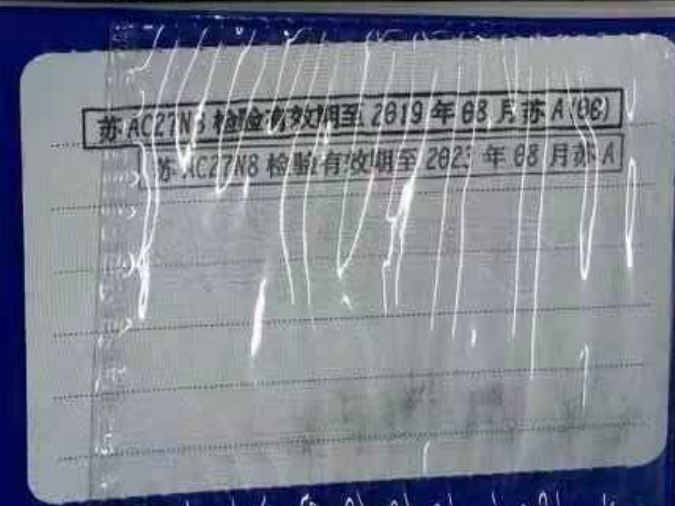 苏AC27N8 检验有效期至 2019 年 08 月苏 A(06)
苏 AC27N8 检验有效期至 2023 年 08 月苏 A